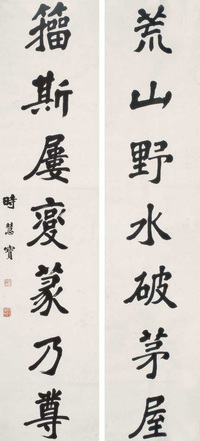 荒山野水破茅屋
籀斯屢變篆乃尊
時慧寶